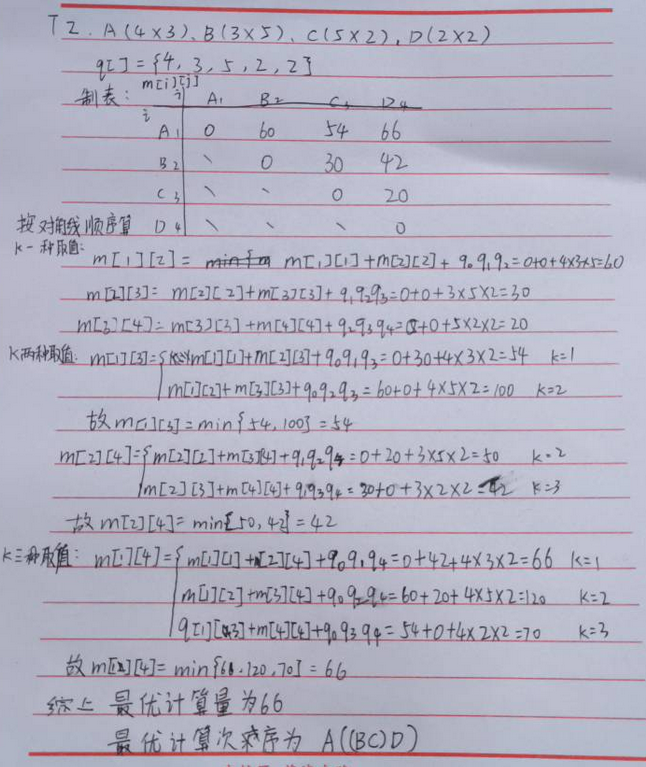 T2. A(4×3)、B(3×5)、C(5×2), D(2×2)
q[] = {4, 3, 5, 2, 2}
制表: m[i][j]
j A1 B2 C3 D4
i
A1 0 60 54 66
B2 \ 0 30 42
C3 \ \ 0 20
按对角线顺序算 D4 \ \ \ 0
k一种取值:
m[1][2] = m[1][1]+m[2][2]+ q0q1q2=0+0+4×3×5=60
m[2][3]= m[2][2]+m[3][3]+ q1q2q3=0+0+3×5×2=30
m[3][4]= m[3][3]+m[4][4]+q2q3q4=0+0+5×2×2=20
k两种取值: m[1][3]={ m[1][1]+m[2][3]+q0q1q3=0+30+4×3×2=54 k=1
m[1][2]+m[3][3]+q0q2q3=60+0+4×5×2=100 k=2
故m[1][3]=min{54,100}=54
m[2][4]={m[2][2]+m[3][4]+q1q2q4=0+20+3×5×2=50 k=2
m[2][3]+m[4][4]+q1q3q4=30+0+3×2×2=42 k=3
故m[2][4]=min{50,42}=42
k三种取值: m[1][4]={m[1][1]+m[2][4]+q0q1q4=0+42+4×3×2=66 k=1
m[1][2]+m[3][4]+q0q2q4=60+20+4×5×2=120 k=2
q[1][3]+m[4][4]+q0q3q4=54+0+4×2×2=70 k=3
故m[1][4]=min{66.120,70}=66
综上 最优计算量为66
最优计算次序为 A((BC)D)